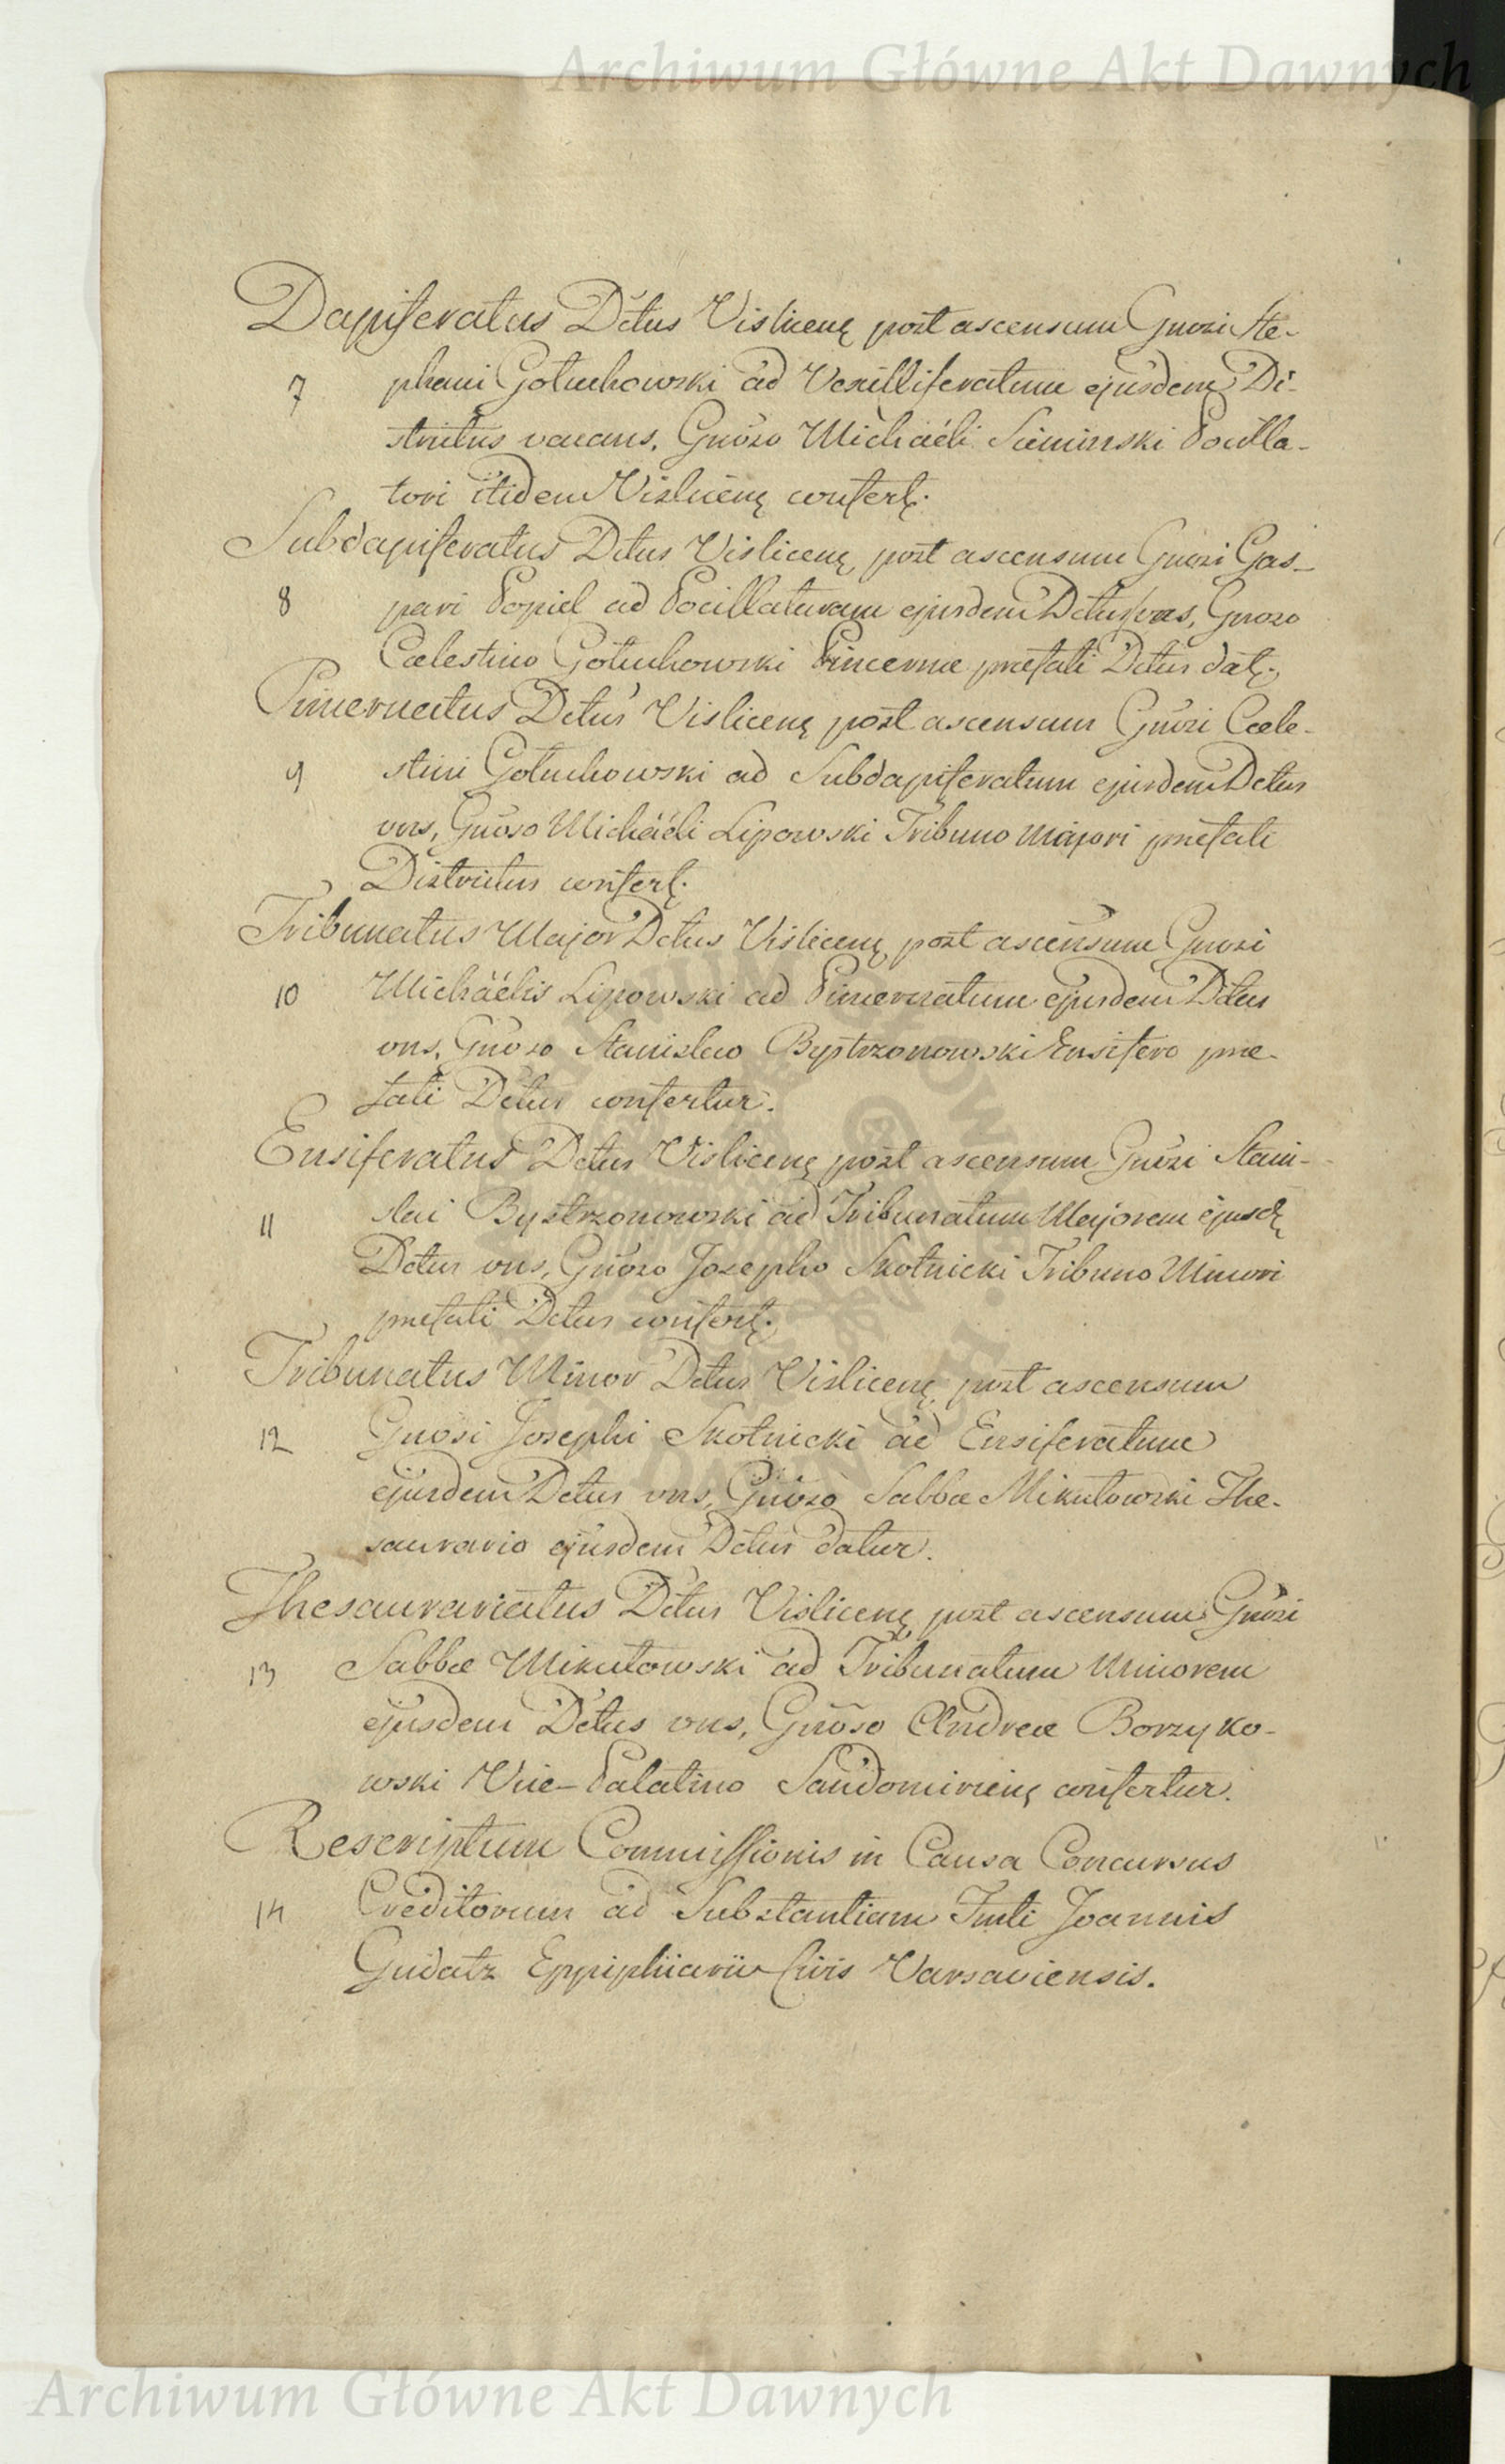 Archiwum Główne Akt Dawnych
Dapiferatus Dctus Vislicenę post ascensum Gnosi Ste-
7 phani Gołuchowski ad Vexilliferatum ejusdem Di-
strictus vacans, Gnoso Michaeli Sieminski Pocilla-
tori itidem Vislicenę confertę.
Subdapiferatus Dctus Vislicenę post ascensum Gnosi Gas-
8 pari Popiel ad Pocillaturam ejusdem Dctus vns, Gnoso
Cælestino Gołuchowski Pincernæ præfati Dctus datę.
Pincernatus Dctus Vislicenę post ascensum Gnosi Cæle-
9 stini Gołuchowski ad Subdapiferatum ejusdem Dctus
vns, Gnoso Michaeli Lipowski Tribuno Majori præfati
Districtus confertę.
Tribunatus Major Dctus Vislicenę post ascensum Gnosi
10 Michaelis Lipowski ad Pincernatum ejusdem Dctus
vns, Gnoso Stanislao Bystrzonowski Ensifero præ-
fati Dctus confertur.
Ensiferatus Dctus Vislicenę post ascensum Gnosi Stani-
11 slai Bystrzonowski ad Tribunatum Majorem ejusdę
Dctus vns, Gnoso Josepho Skotnicki Tribuno Minori
præfati Dctus confertę.
Tribunatus Minor Dctus Vislicenę post ascensum
12 Gnosi Josephi Skotnicki ad Ensiferatum
ejusdem Dctus vns, Gnoso Sabbæ Mikułowski The-
saurario ejusdem Dctus datur.
Thesaurariatus Dctus Vislicenę post ascensum Gnosi
13 Sabbæ Mikułowski ad Tribunatum Minorem
ejusdem Dctus vns, Gnoso Andreæ Borzyko-
wski Vice-Palatino Sandomirienę confertur.
Rescriptum Commissionis in Causa Concursus
14 Creditorum ad Substantiam Fmti Joannis
Gudatz Eppiphiarii Civis Varsaviensis.
Archiwum Główne Akt Dawnych